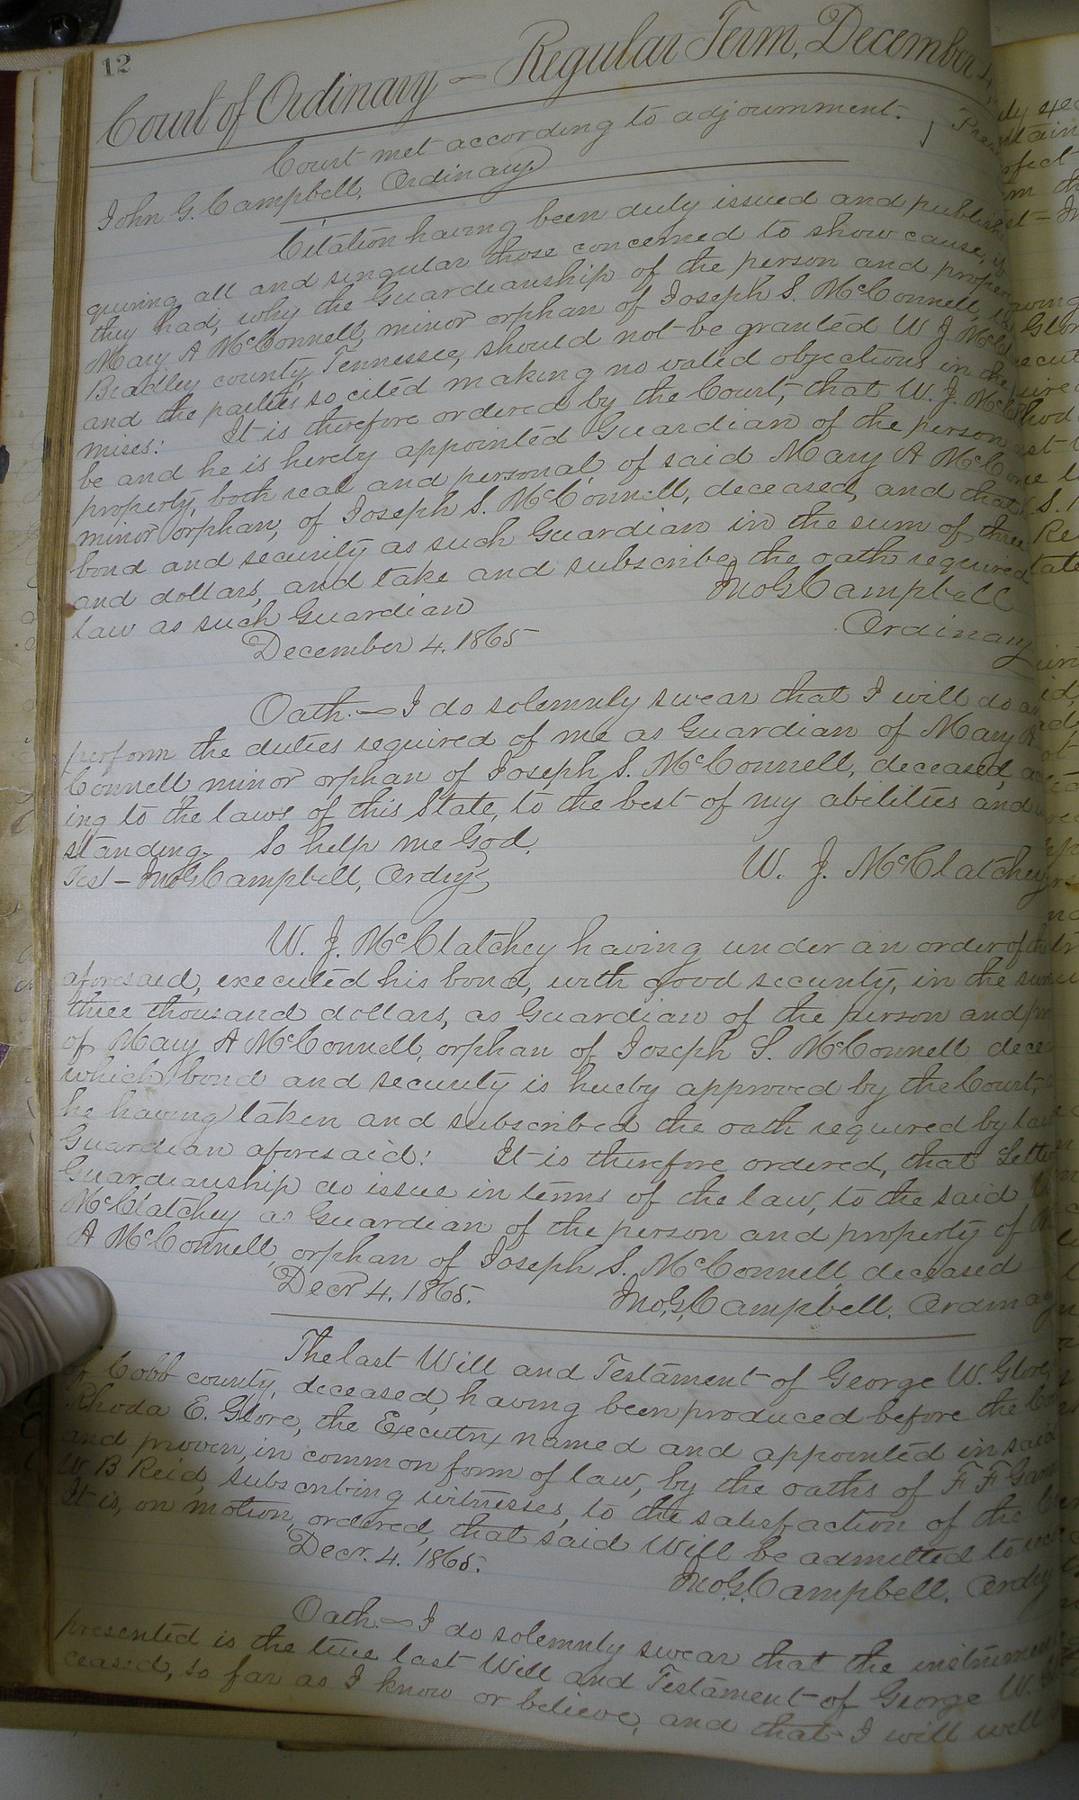 12
Court of Ordinary — Regular Term, December 4,
Court met according to adjournment. } Pres
John G. Campbell, Ordinary.
Citation having been duly issued and publish
quiring all and singular those concerned to show cause, if
they had, why the Guardianship of the person and proper
Mary A McConnell, minor orphan of Joseph S. McConnell,
Bradley county, Tennessee, should not be granted W. J. McCl
and the parties so cited making no valid objections in the
mises: It is therefore ordered by the Court, that W. J. McCl
be and he is hereby appointed Guardian of the person
property, both real and personal, of said Mary A McCo
minor orphan, of Joseph S. McConnell, deceased, and that
bond and security as such Guardian in the sum of three
and dollars, and take and subscribe the oath required
law as such Guardian
Jno G. Campbell
December 4. 1865
Ordinary
Oath.— I do solemnly swear that I will do a
perform the duties required of me as Guardian of Mary A
Connell minor orphan of Joseph S. McConnell, deceased, ac
ing to the laws of this State, to the best of my abilities and
standing. So help me God.
W. J. McClatchey
Test — Jno G. Campbell, Ordry
W. J. McClatchey having under an order of the
aforesaid, executed his bond, with good security, in the sum
three thousand dollars, as Guardian of the person and pro
of Mary A McConnell, orphan of Joseph S. McConnell dece
which bond and security is hereby approved by the Court,
he having taken and subscribed the oath required by law
Guardian aforesaid: It is therefore ordered, that Lette
Guardianship do issue in terms of the law, to the said
McClatchey as Guardian of the person and property of
A McConnell, orphan of Joseph S. McConnell, deceased
Decr 4. 1865. Jno. G. Campbell. Ordinary
The last Will and Testament of George W. Glore,
of Cobb county, deceased, having been produced before the Co
Rhoda E. Glore, the Executrix named and appointed in said
and proven, in common form of law, by the oaths of F F Gan
W B Reid, subscribing witnesses, to the satisfaction of the
It is, on motion, ordered, that said Will be admitted to rec
Decr. 4. 1865. Jno. G. Campbell. Ordry
Oath.— I do solemnly swear that the instrumen
presented is the true last Will and Testament of George W.
ceased, so far as I know or believe, and that I will well